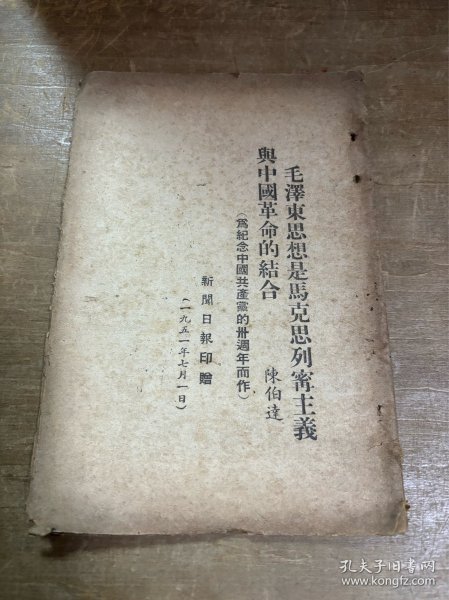 毛澤東思想是馬克思列寗主義
與中國革命的結合
陳伯達
（爲紀念中國共產黨的卅週年而作）
新聞日報印贈
（一九五一年七月一日）
孔夫子旧书网
www.kongfz.com